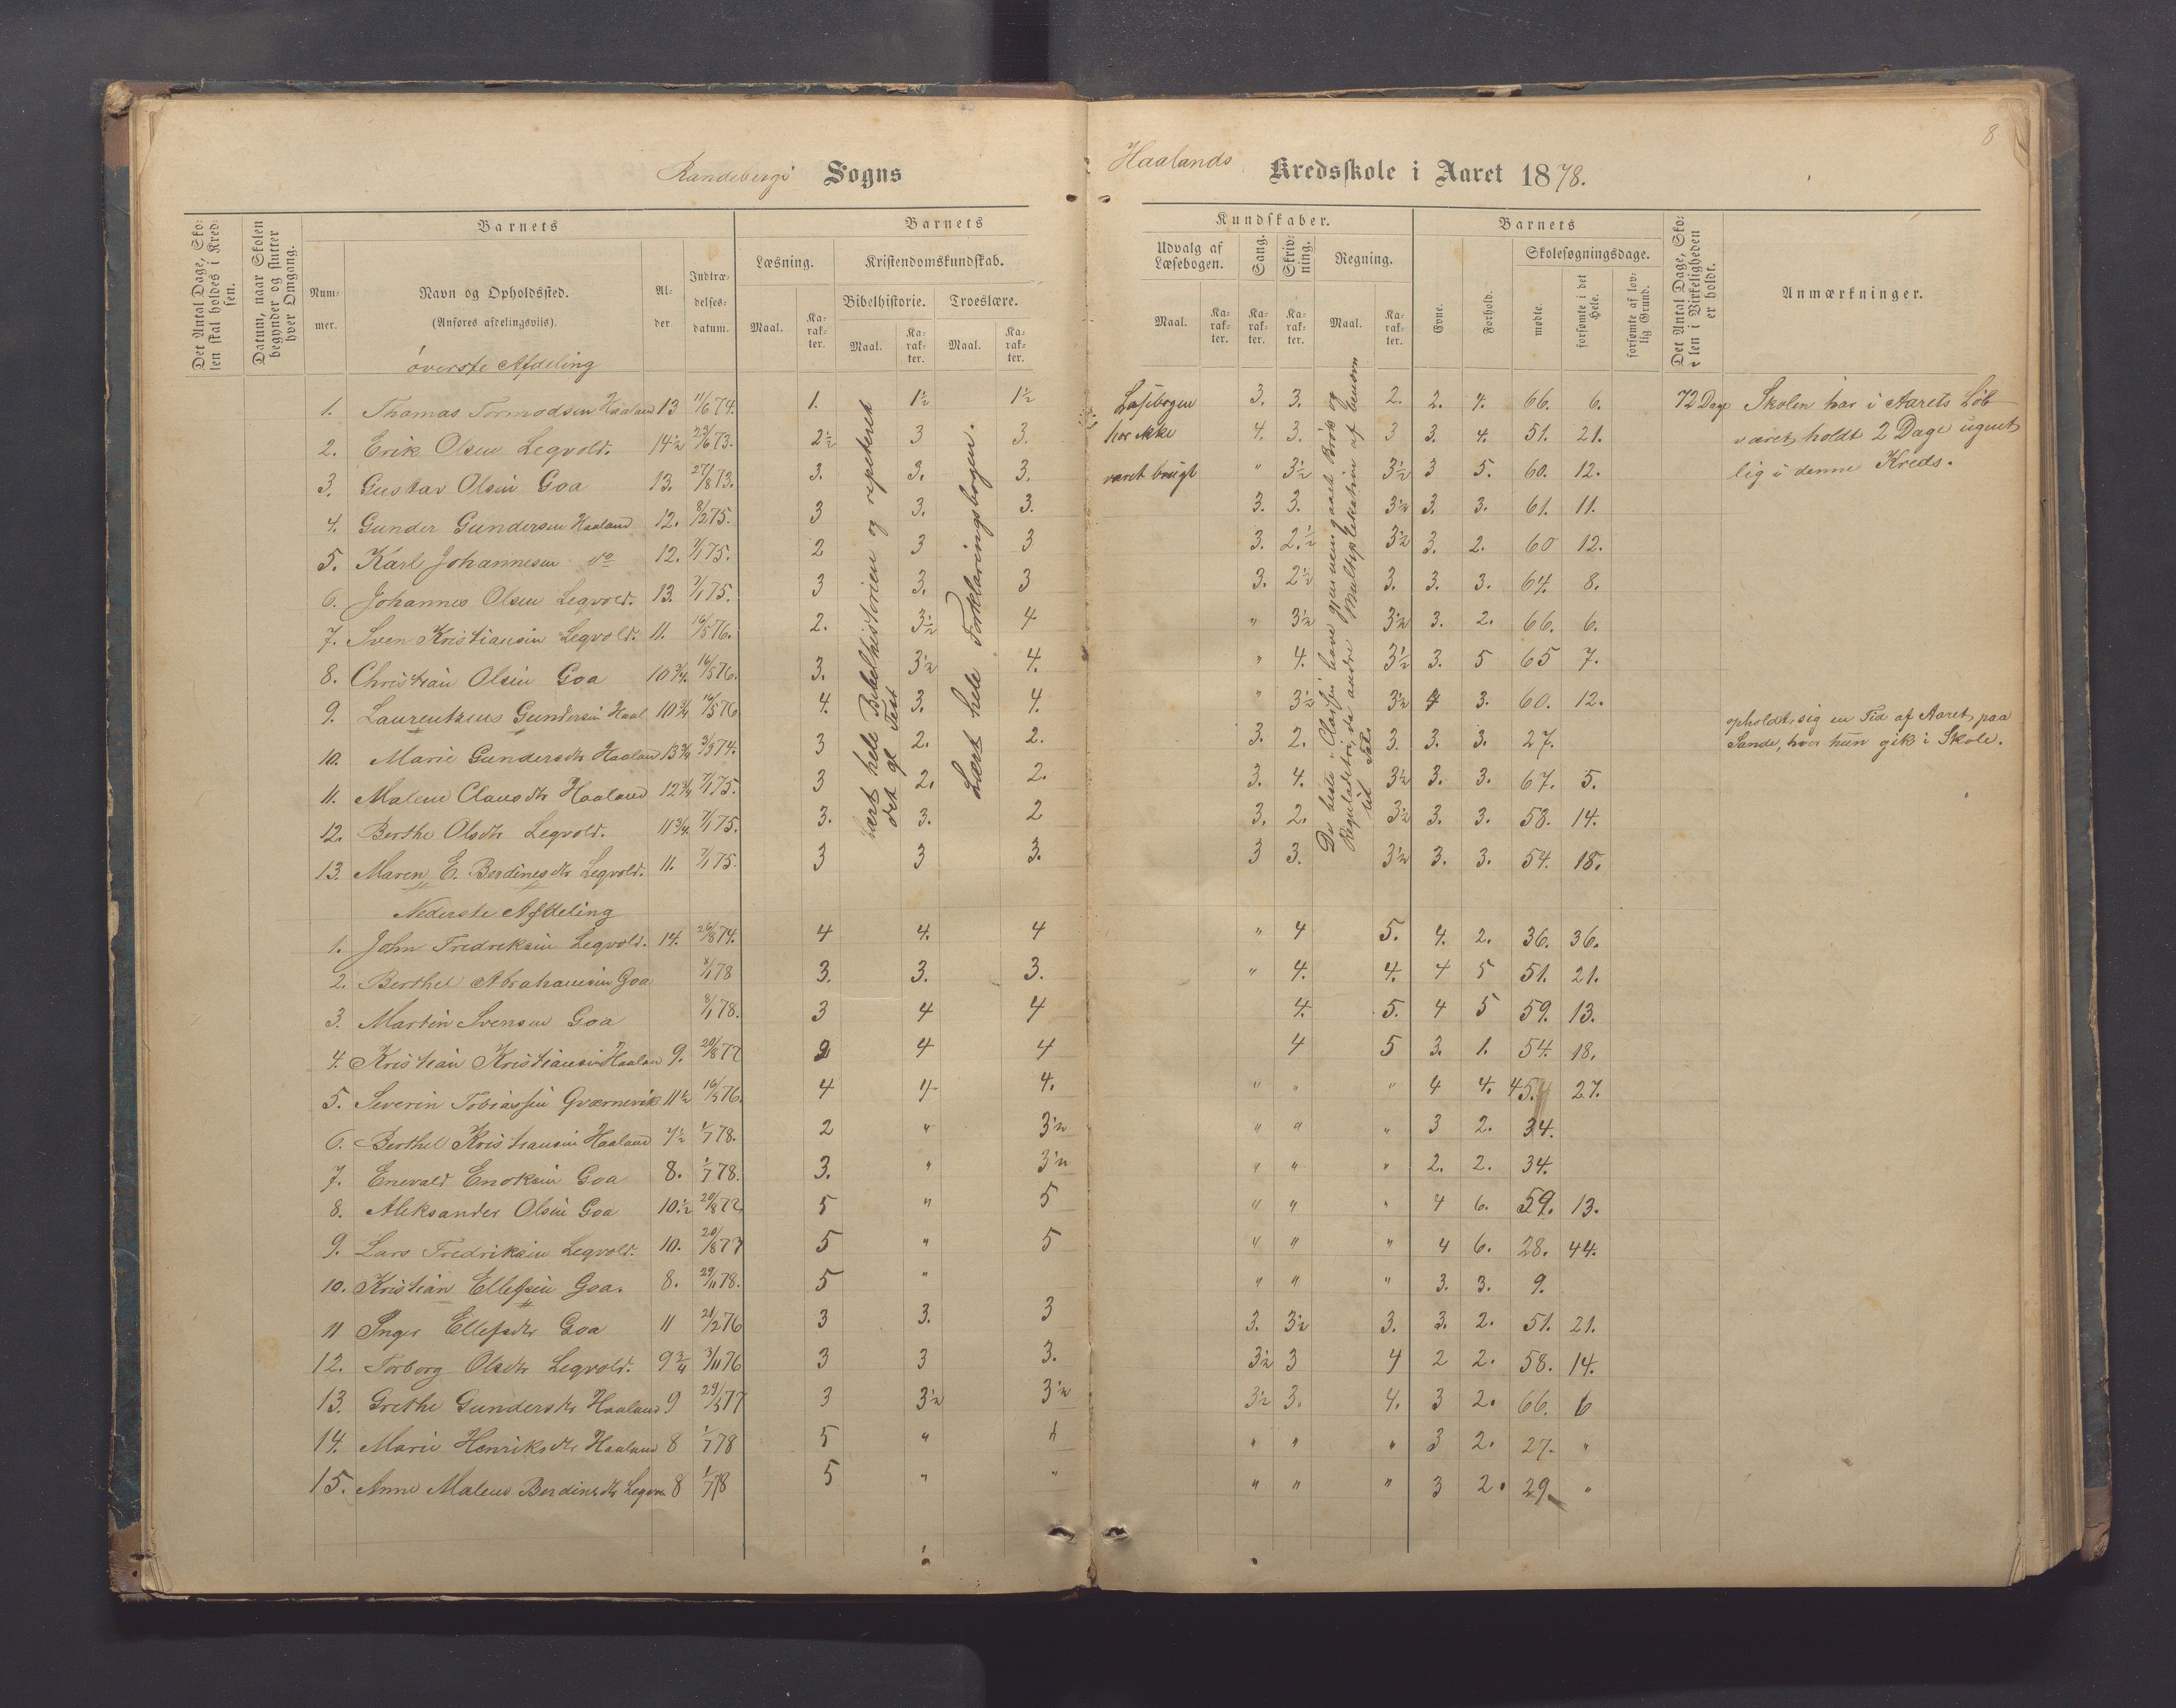 8
Randebergs Sogns Haalands Kredsskole i Aaret 1878.
Det Antal Dage, Skolen skal holdes i Kredsen.
Datum, naar Skolen begynder og slutter hver Omgang.
Barnets
Nummer.
Navn og Opholdssted.
(Anføres afdelingsvis).
Alder.
Indtrædelsesdatum.
Barnets Kundskaber.
Læsning.
Maal.
Karakter.
Kristendomskundskab.
Bibelhistorie.
Maal.
Karakter.
Troeslære.
Maal.
Karakter.
Udvalg af Læsebogen.
Maal.
Karakter.
Sang.
Karakter.
Skrivning.
Karakter.
Regning.
Maal.
Karakter.
Barnets
Evne.
Forhold.
Skolesøgningsdage.
mødte.
forsømte i det Hele.
forsømte af lovlig Grund.
Det Antal Dage, Skolen i Virkeligheden er holdt.
Anmærkninger.
øverste Afdeling
1. Thomas Tormodsen Haaland 13 11/6 74. 1. 1½ 1½ 3. 3. 2. 2. 4. 66. 6. 72 Dage
2. Erik Olsen Legvold. 14½ 23/6 73. 2½ 3 3. 4. 3. 3 3. 4. 51. 21.
3. Gustav Olsen Goa 13. 27/8 73. 3. 3. 3. " 3½ 3½ 3 5. 60. 12.
4. Gunder Gundersen Haaland 12. 8/2 75. 3 3. 3. 3. 3. 3½ 3. 3. 61. 11.
5. Karl Johannesen do 12. 7/1 75. 2 3 3 3. 2.½ 3½ 3. 2. 60 12.
6. Johannes Olsen Legvold. 13. 7/1 75. 3 3. 3 3. 2½ 3. 3. 3. 64. 8.
7. Sven Kristiansen Legvold. 11. 16/5 76. 2. 3½ 4 " 3½ 3½ 3. 2. 66. 6.
8. Christian Olsen Goa 10¾ 16/5 76. 3. 3½ 4. " 4. 3½ 3. 5 65 7.
9. Laurentzius Gundersen Haal 10¾ 16/5 76 4. 3. 4. " 3½ 3½ 4 3. 60. 12.
10. Marie Gundersdtr Haaland 13¾ 3/3 74. 3 2. 2. 3. 2. 3. 3. 3. 27.
11. Malene Clausdtr Haaland 12¾ 7/1 75. 3 2. 2. 3. 4. 3½ 3. 3. 67. 5.
12. Berthe Olsdtr Legvold. 11¾ 7/1 75. 3. 3. 2 3. 2. 3½ 3. 3. 58. 14.
13. Maren E. Berdinesdtr Legvold. 11. 7/1 75. 3 3 3. 3 3. 3½ 3. 3. 54. 18.
Lært hele Bibelhistorien og repeteret
det gl Test
Lært hele Forklaringsbogen.
Læsebogen
har ikke
været brugt
De beste i Classen have gjennemgaaet Brøk og
Reguladetri, de andre Multiplikation af benævn
te Tal.
Skolen har i Aarets Løb
været holdt 2 Dage ugent
lig i denne Kreds.
opholdt sig en Tid af Aaret paa
Sande, hvor hun gik i Skole.
Nederste Afdeling
1. John Fredriksen Legvold. 14. 26/8 74. 4 4. 4 " 4 5. 4. 2. 36. 36.
2. Berthel Abrahamsen Goa 8/1 78 3. 3. 3. " 4. 4. 4 5 51. 21.
3. Martin Svensen Goa 8/1 78. 3 4 4 4. 5. 4 5 59. 13.
4. Kristian Kristiansen Haaland 9. 20/8 77 2 4 4 4 5 3. 1. 54. 18.
5. Severin Tobiassen Gværnevik 11½ 16/5 76. 4 4 4. " " " 4 4. 45. 27.
6. Berthel Kristiansen Haaland 7½ 1/7 78. 2 " 3½ " " " 3 2. 34.
7. Enevald Enoksen Goa 8. 1/7 78. 3. " 3½ " " " 2. 2. 34.
8. Aleksander Olsen Goa 10.½ 20/8 77 5 " 5 " " " 4 6. 59. 13.
9. Lars Fredriksen Legvold. 10. 20/8 77 5 " 5 " " " 4 6. 28. 44.
10. Kristian Ellefsen Goa. 8. 29/11 78. 5 " " " " 3. 3. 9.
11 Inger Ellefsdtr Goa 11 21/2 76 3 3. 3 3. 3½ 3. 3. 2. 51. 21.
12. Torborg Olsdtr Legvold. 9¾ 3/11 76 3 3 3. 3½ 3 4 2 2. 58. 14.
13. Grethe Gundersdtr Haaland 9 29/3 77 3 3½ 3½ 3½ 3. 4. 3 2. 66. 6
14. Marie Henriksdtr Haaland 8 1/7 78 5 " " " " " 3 2. 27. "
15. Anne Malene Berdinesdtr Legvo 8 1/7 78 5 " " " " " 3 2. 29. "